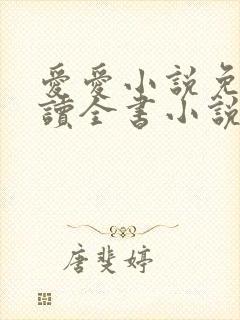 愛愛小説免
讀全書小說
唐斐婷